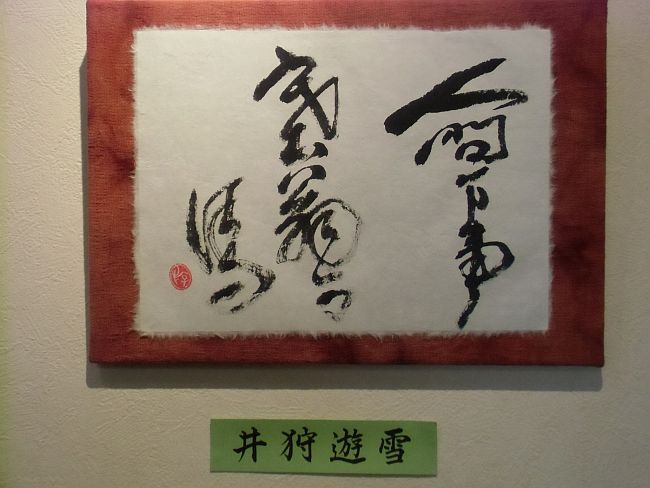 人間万事
塞翁が
馬
井狩遊雪